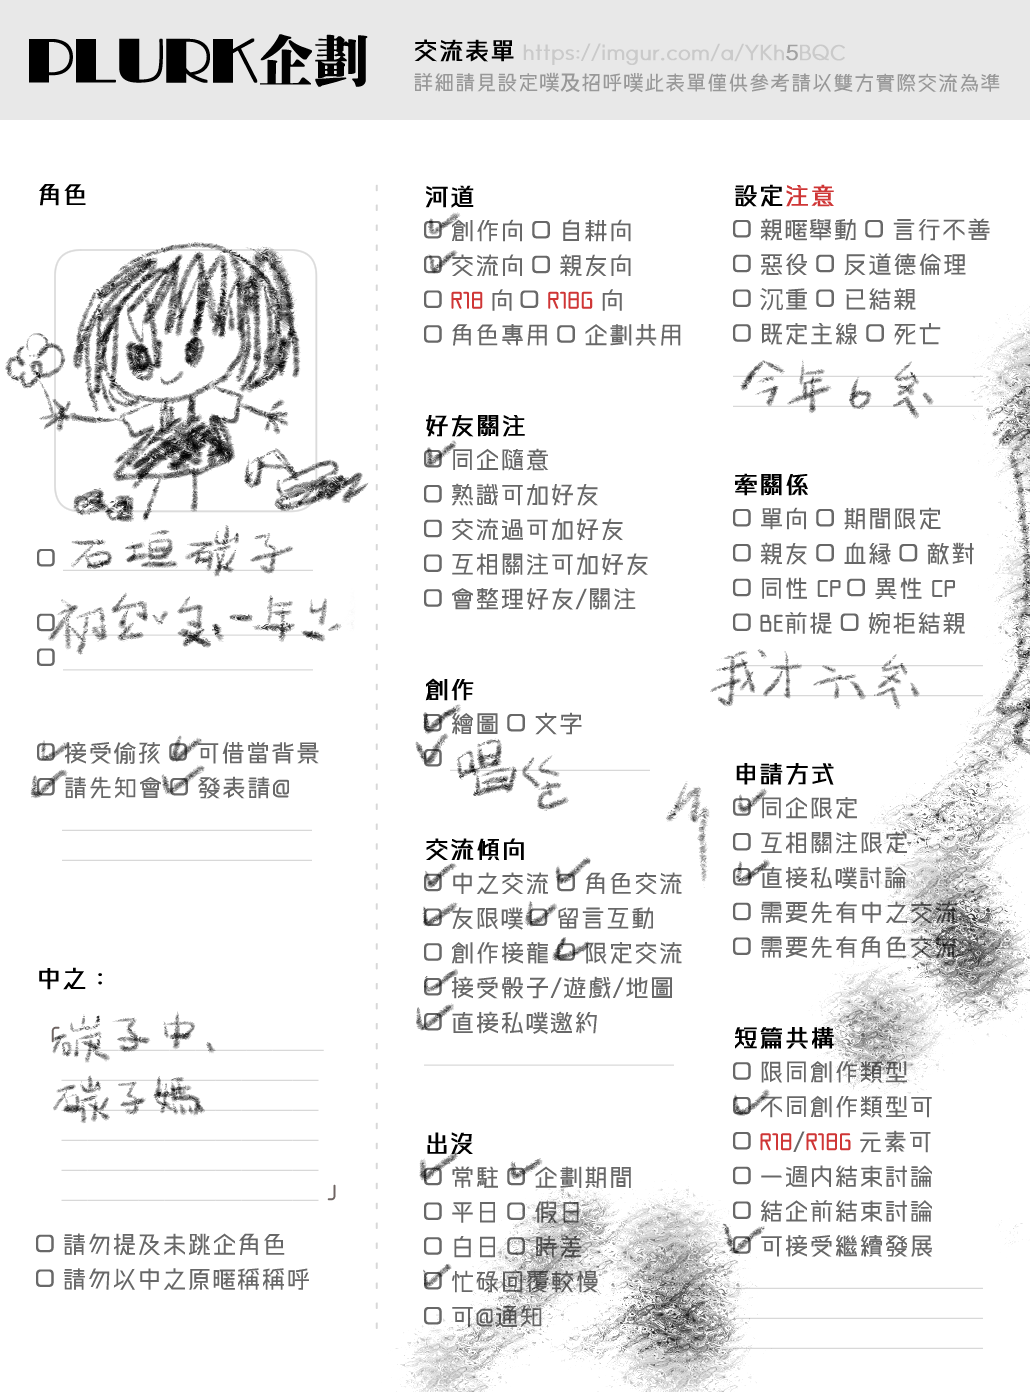 PLURK企劃
交流表單 https://imgur.com/a/YKh5BQC
詳細請見設定噗及招呼噗此表單僅供參考請以雙方實際交流為準
角色
石垣碳子
初倉小兔,一年生
接受偷孩 可借當背景
請先知會 發表請@
中之：
碳子中、
碳子媽
」
請勿提及未跳企角色
請勿以中之原暱稱稱呼
河道
創作向 自耕向
交流向 親友向
R18 向 R18G 向
角色專用 企劃共用
好友關注
同企隨意
熟識可加好友
交流過可加好友
互相關注可加好友
會整理好友/關注
創作
繪圖 文字
唱ㄍㄜ
交流傾向
中之交流 角色交流
友限噗 留言互動
創作接龍 限定交流
接受骰子/遊戲/地圖
直接私噗邀約
出沒
常駐 企劃期間
平日 假日
白日 時差
忙碌回覆較慢
可@通知
設定注意
親暱舉動 言行不善
惡役 反道德倫理
沉重 已結親
既定主線 死亡
今年6糸
牽關係
單向 期間限定
親友 血緣 敵對
同性 CP 異性 CP
BE前提 婉拒結親
我才六糸
申請方式
同企限定
互相關注限定
直接私噗討論
需要先有中之交流
需要先有角色交流
短篇共構
限同創作類型
不同創作類型可
R18/R18G 元素可
一週内結束討論
結企前結束討論
可接受繼續發展